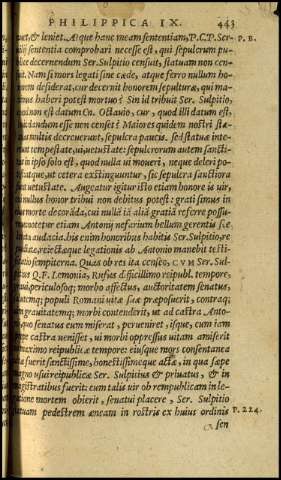 PHILIPPICA IX. 443
& leniet. Atque hanc meam sententiam, P. C. P. Ser. P. B.
sententia comprobari necesse est, qui sepulcrum pu-
decernendum Ser. Sulpitio censuit, statuam non cen-
Nam si mors legati sine cæde, atque ferro nullum ho-
desiderat, cur decernit honorem sepulturæ, qui ma-
haberi potest mortuo? Sin id tribuit Ser. Sulpitio,
non est datum Cn. Octauio, cur, quod illi datum est,
dandum esse non censet? Maiores quidem nostri sta-
multis decreuerunt, sepulcra paucis. sed statuæ inte-
tempestate, ui, uetustate: sepulcrorum autem sancti-
in ipso solo est, quod nulla ui moueri, neque deleri po-
atque, ut cetera exstinguuntur, sic sepulcra sanctiora
uetustate. Augeatur igitur isto etiam honore is uir,
honor tribui non debitus potest: grati simus in
morte decoranda, cui nullam iam aliam gratiam referre possu-
notetur etiam Antonij nefarium bellum gerentis sce-
audacia. his enim honoribus habitis Ser. Sulpitio, re-
reiectæque legationis ab Antonio manebit testi-
sempiterna. Quas ob res ita censeo, CVM Ser. Sul-
Q. F. Lemonia, Rufus difficillimo reipubl. tempore,
periculosoq; morbo affectus, auctoritatem senatus,
populi Romani uitæ suæ præposuerit, contraq;
grauitatemq; morbi contenderit, ut ad castra Anto-
quo senatus eum miserat, perueniret, isque, cum iam
castra uenisset, ui morbi oppressus uitam amiserit
reipublicæ tempore: eiusque mors consentanea
fuerit sanctissime, honestissimeque actæ, in qua sæpe
usui reipublicæ Ser. Sulpitius & priuatus, & in
magistratibus fuerit: cum talis uir ob rempublicam in le-
mortem obierit, senatui placere, Ser. Sulpitio
pedestrem æneam in rostris ex huius ordinis P. 224.
sen